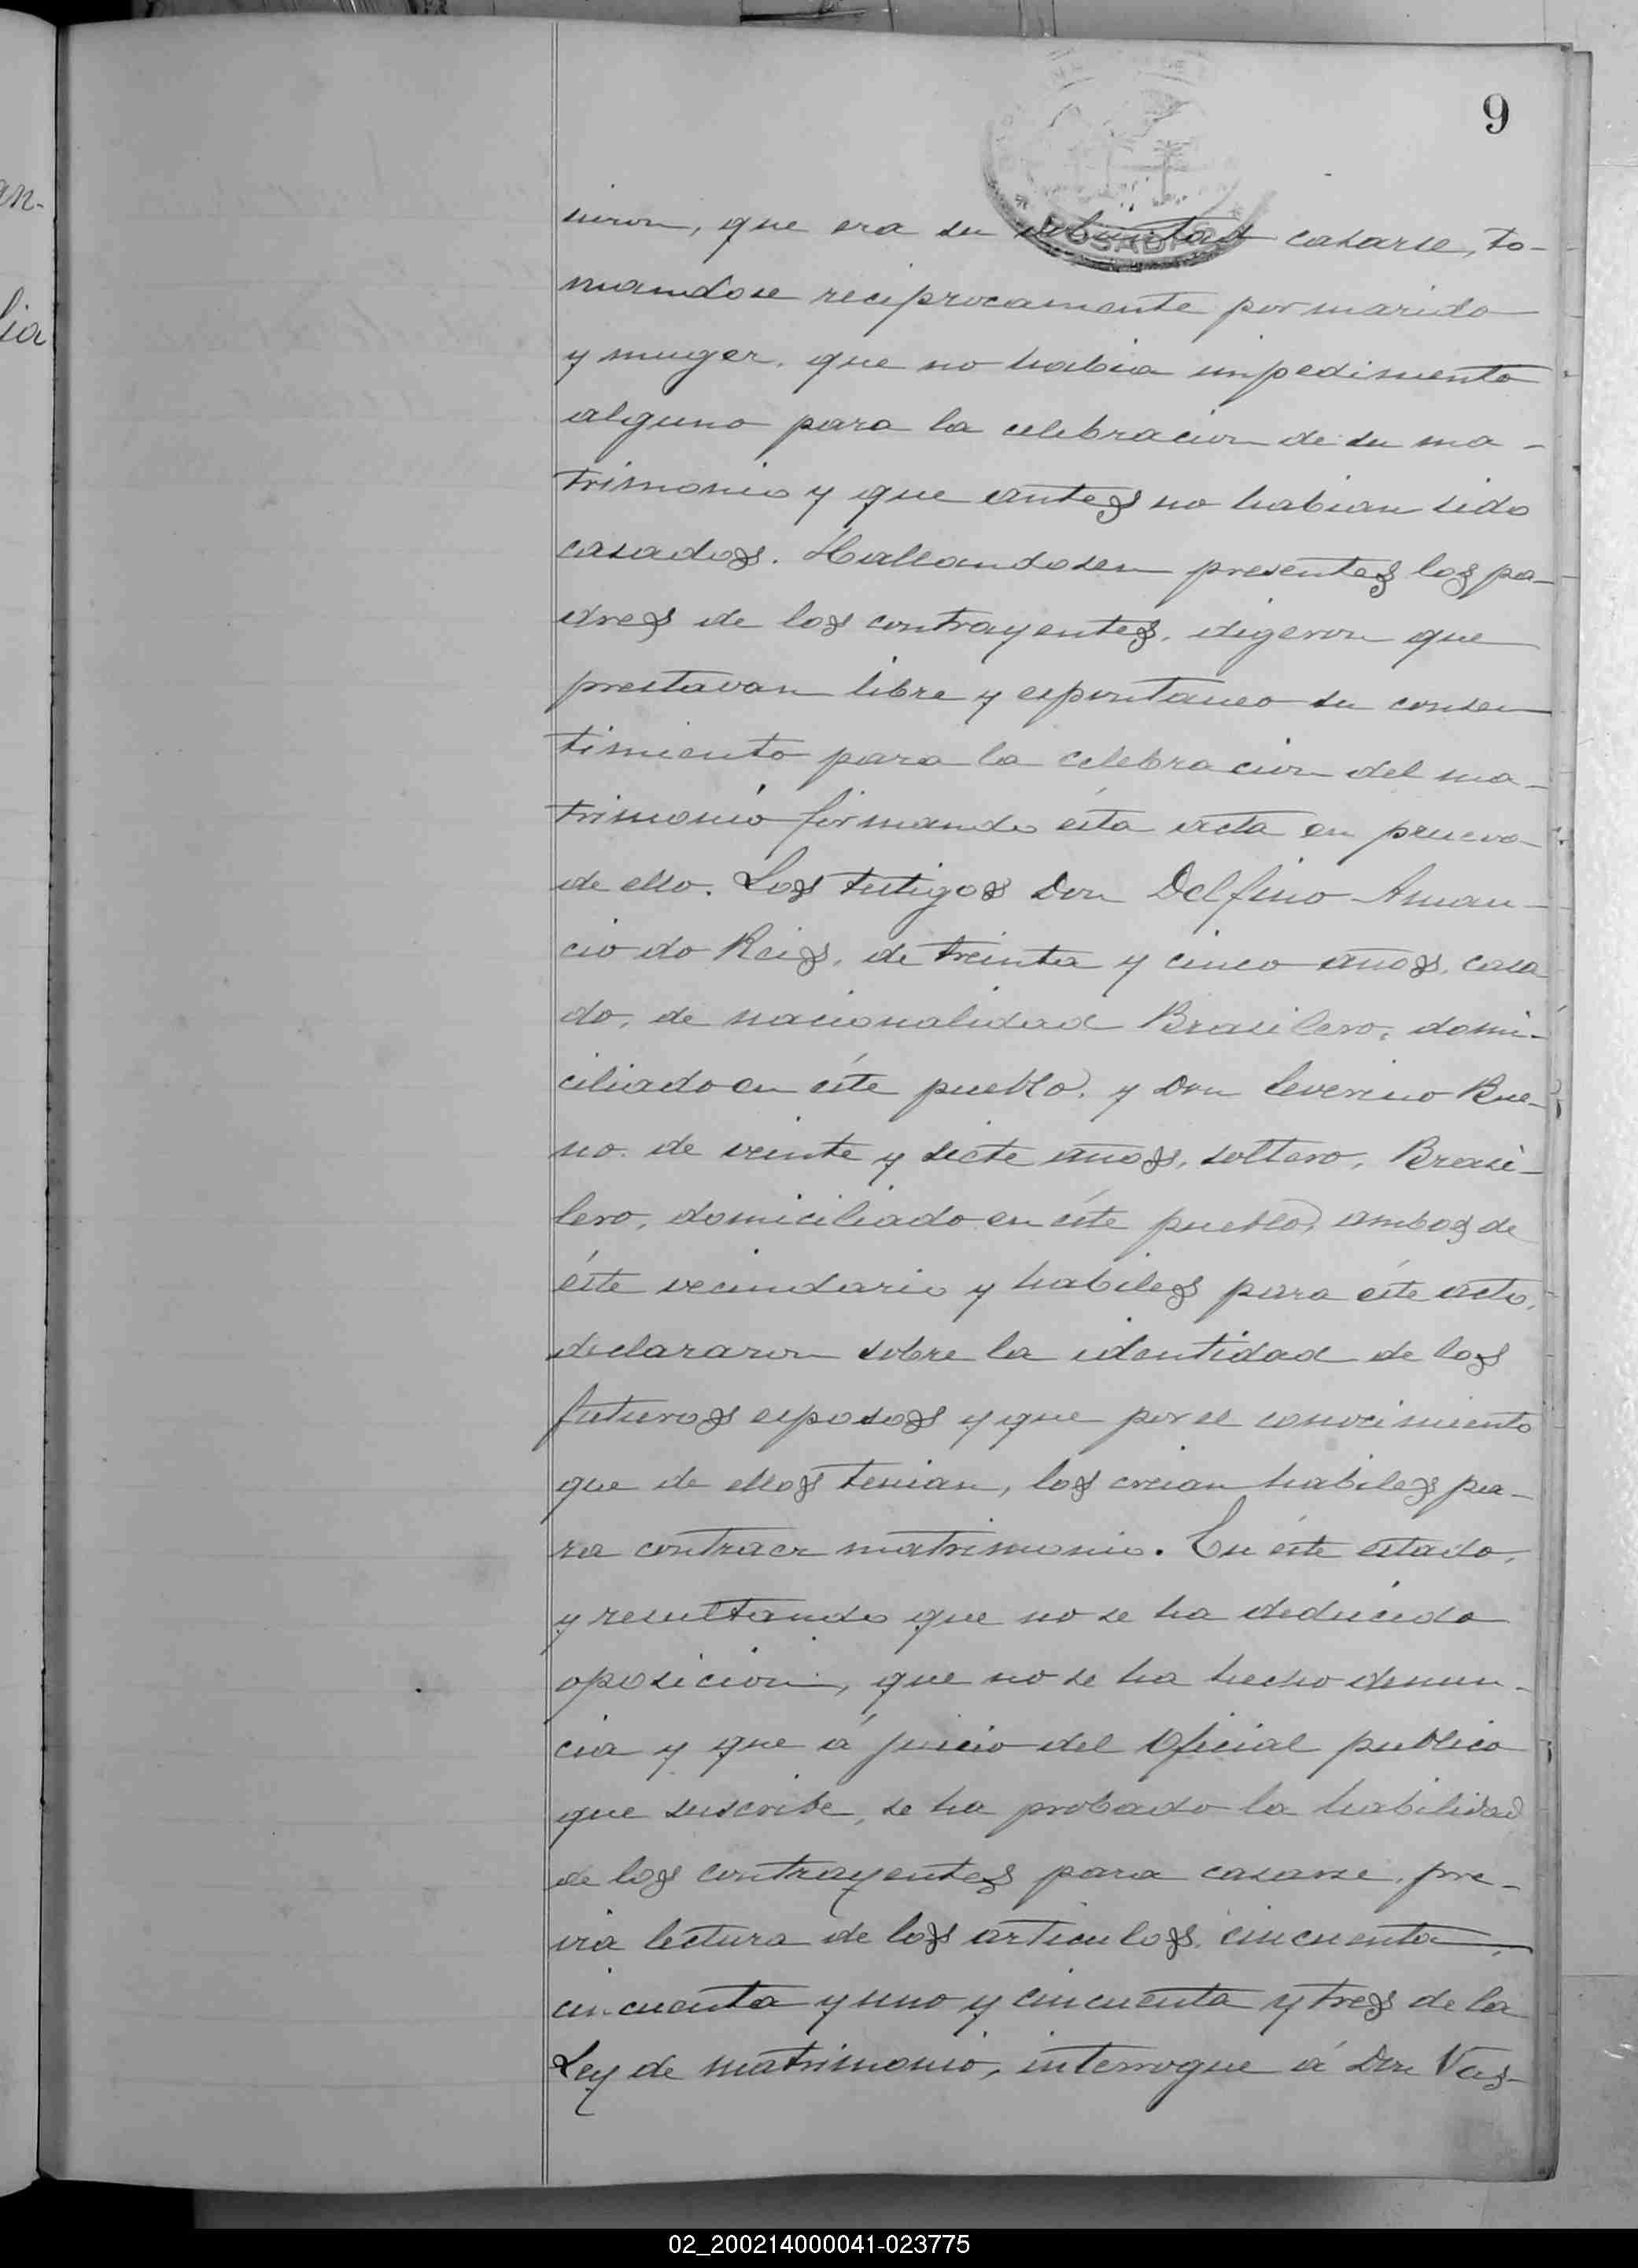 9
an-
lia
POSADAS
nieron, que era su voluntad casarse, to-
mandose reciprocamente por marido
y muger, que no habia impedimento
alguno para la celebracion de su ma-
trimonio y que antes no habian sido
casados. Hallandosen presentes los pa-
dres de los contrayentes, digeron que
prestavan libre y espontaneo su consen
timiento para la celebracion del ma-
trimonio firmando ésta acta en prueva
de ello. Los testigos Don Delfino Aman-
cio do Reis, de treinta y cinco años, casa
do, de nacionalidad Brasilero, domi-
ciliado en éste pueblo, y Don Severino Bue-
no, de veinte y siete años, soltero, Brasi-
lero, domiciliado en éste pueblo, ambos de
éste vecindario y habiles para éste acto,
declararon sobre la identidad de los
futuros esposos y que por el conocimiento
que de ellos tenian, los creian habiles pa-
ra contraer matrimonio. En éste estado,
y resultando que no se ha deducido
oposicion, que no se ha hecho denun-
cia y que á juicio del Oficial publico
que suscribe, se ha probado la habilidad
de los contrayentes para casarse, pre-
via lectura de los articulos, cincuenta,
cincuenta y uno y cincuenta y tres de la
Ley de matrimonio, interrogue á Don Vas-
02_200214000041-023775